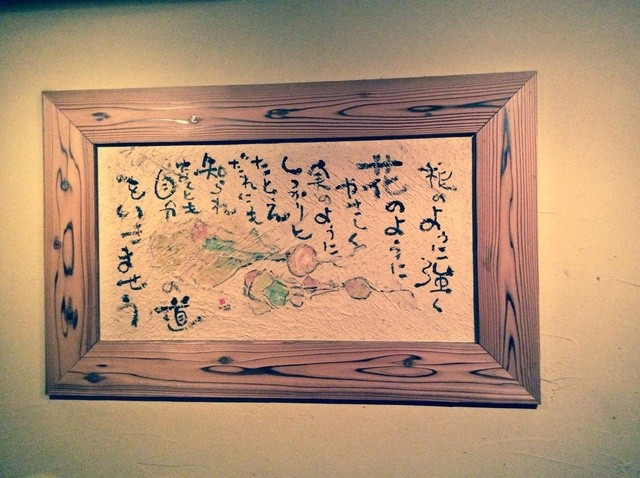 根のように強く
花のように
やさしく
実のように
しっかりと
たとえ
だれにも
知られ
なくとも
自分の道
をいきませう